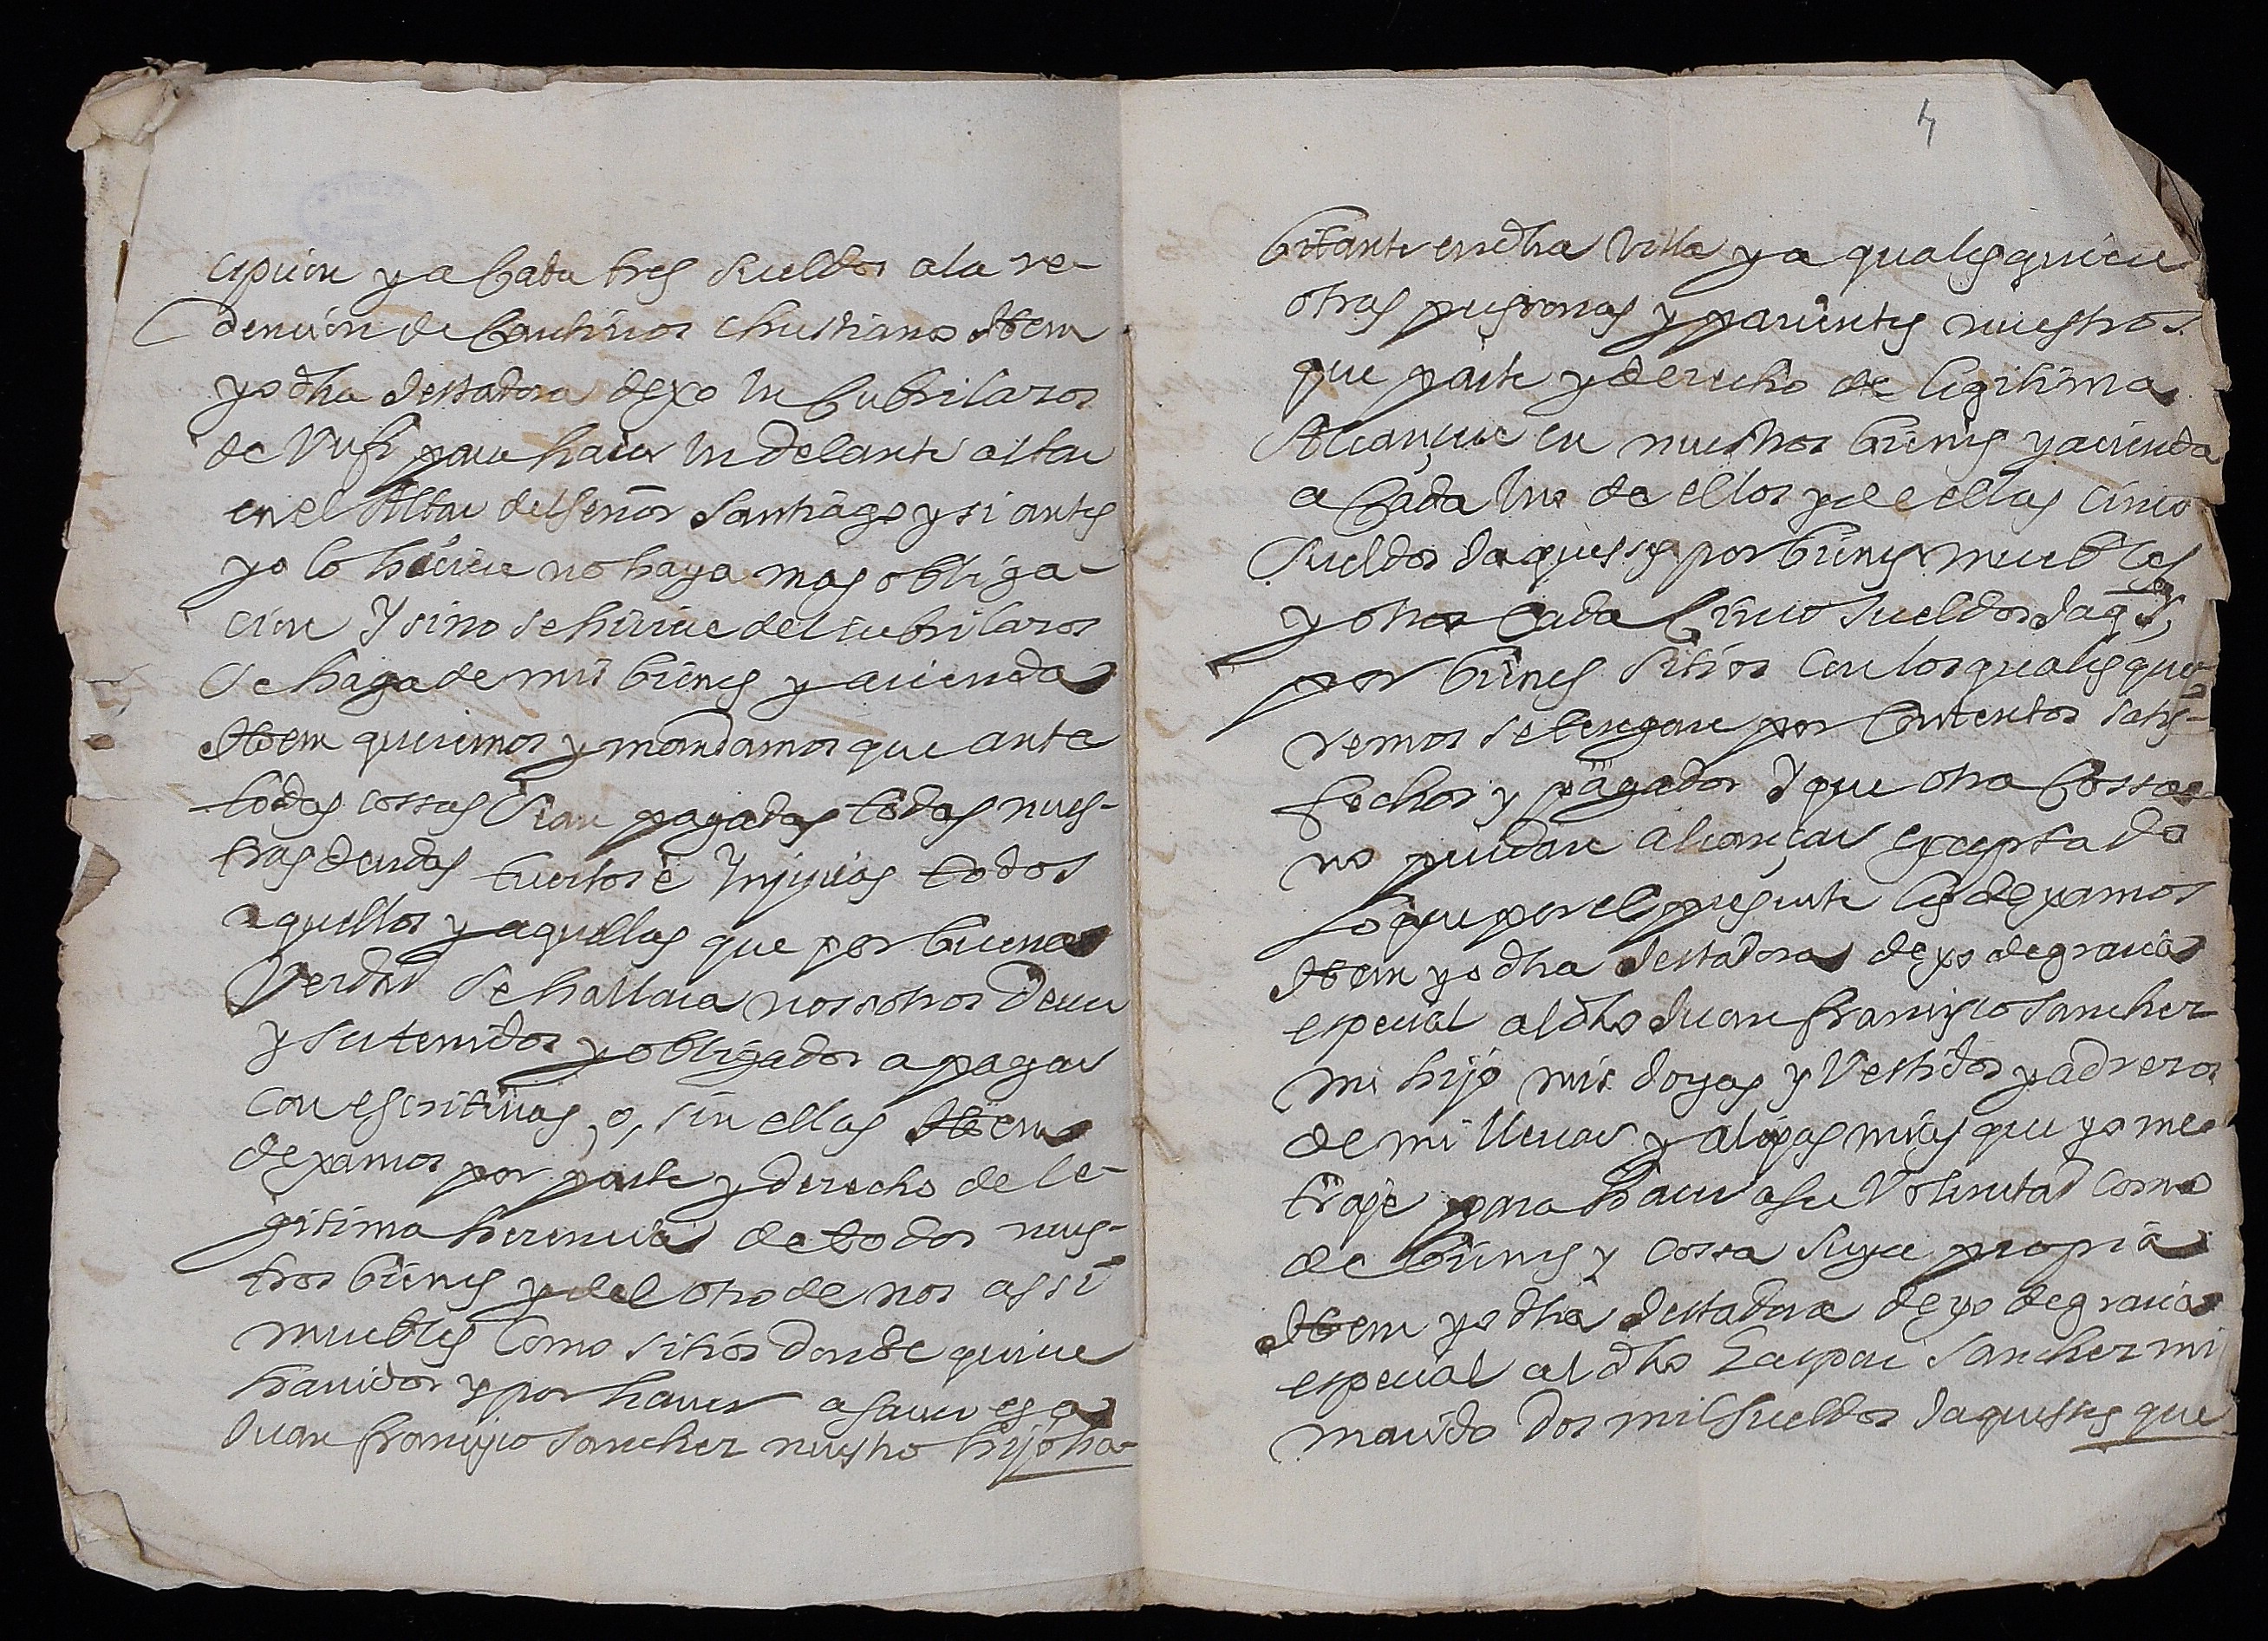 cipcion y a Cada tres sueldos a la re-
dencion de Cautivos christianos Item
yo dha testadora dexo un Cubrilazos
de para hacer un delante altar
en el Altar del Señor Santiago y si antes
yo lo hiciere no haya mas obliga-
cion Y sino se hiciere del cubrilazos
se haga de mis bienes y acienda
Item queremos y mandamos que ante
todas cossas sean pagadas todas nues-
tras deudas tuertos è Injurias todos
aquellos y aquellas que por buena
Verdad se hallara nossotros dever
y ser tenidos y obligados a pagar
con escrituras, o, sin ellas Item
dexamos por parte y derecho de le-
gitima herencia de todos nues-
tros bienes y del otro de nos assi
muebles Como sitios donde quiere
havidos y por haver a saver es a
Juan francisco Sanchez nuestro hijo ha-
4
bitante en dha Villa y a qualesquiere
otras personas y parientes nuestros
que parte y derecho de legitima
Alcançar en nuestros bienes y acienda
a Cada uno de ellos y de ellas cinco
sueldos Jaquesses por bienes muebles
y otros Cada Cinco sueldos Jaqs,
por bienes sitios con los quales que-
remos se tengan por Contentos satis-
fechos y pagados Y que otra Cossa
no puedan alcançar exceptado
lo que por el presente les dexamos
Item yo dha testadora dexo de gracia
especial al dho Juan francisco Sanchez
mi hijo mis Joyas y Vestidos y adrezos
de mi llevar y alajas mias que yo me
traje para hacer a su Voluntad como
de bienes y cossa suya propia
Item yo dha testadora dexo de gracia
especial al dho Gaspar Sanchez mi
marido dos mil sueldos Jaqueses que